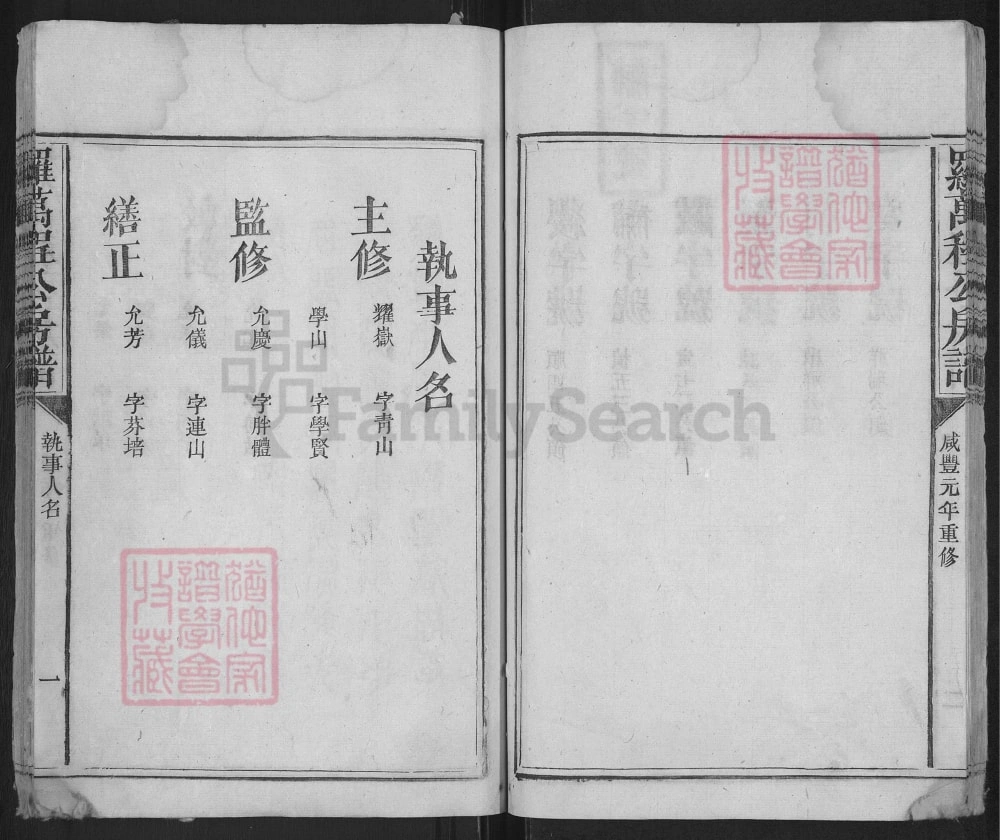 羅萬程公房譜
咸豐元年重修
執事人名
主修
耀嶽 字青山
學山 字學賢
監修
允慶 字胖體
允儀 字連山
繕正
允芳 字芬培
羅萬程公房譜
執事人名
一
FamilySearch
譜學會
收藏
譜學會
收藏